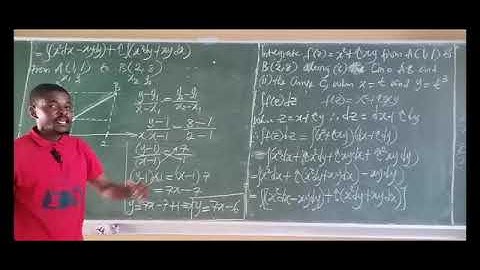 = ∫(x²dx - xydy) + i∫(x²dy + xydx)
From A(1,1) to B(2,8)
x₁ y₁ x₂ y₂
B
2
y-y₁/x-x₁ = y₂-y₁/x₂-x₁
y-1/x-1 = 8-1/2-1
(y-1)/(x-1) = 7/1
(y-1)1 = (x-1)7
= 7x-7
y = 7x-7+1 = y = 7x-6
Integrate f(z) = x²+ixy from A(1,1) to
B(2,8) along (i) the line AB and
(ii) the curve C when x=t and y=t³
∫f(z)dz f(z) = x²+ixy
z = x+iy ∴ dz = dx+idy
∫f(z)dz = ∫(x²+ixy)(dx+idy)
= ∫(x²dx+ix²dy+ixydx+i²xydy)
= ∫(x²dx+ix²dy+ixydx-xydy)
= ∫[(x²dx-xydy)+i(x²dy+xydx)]